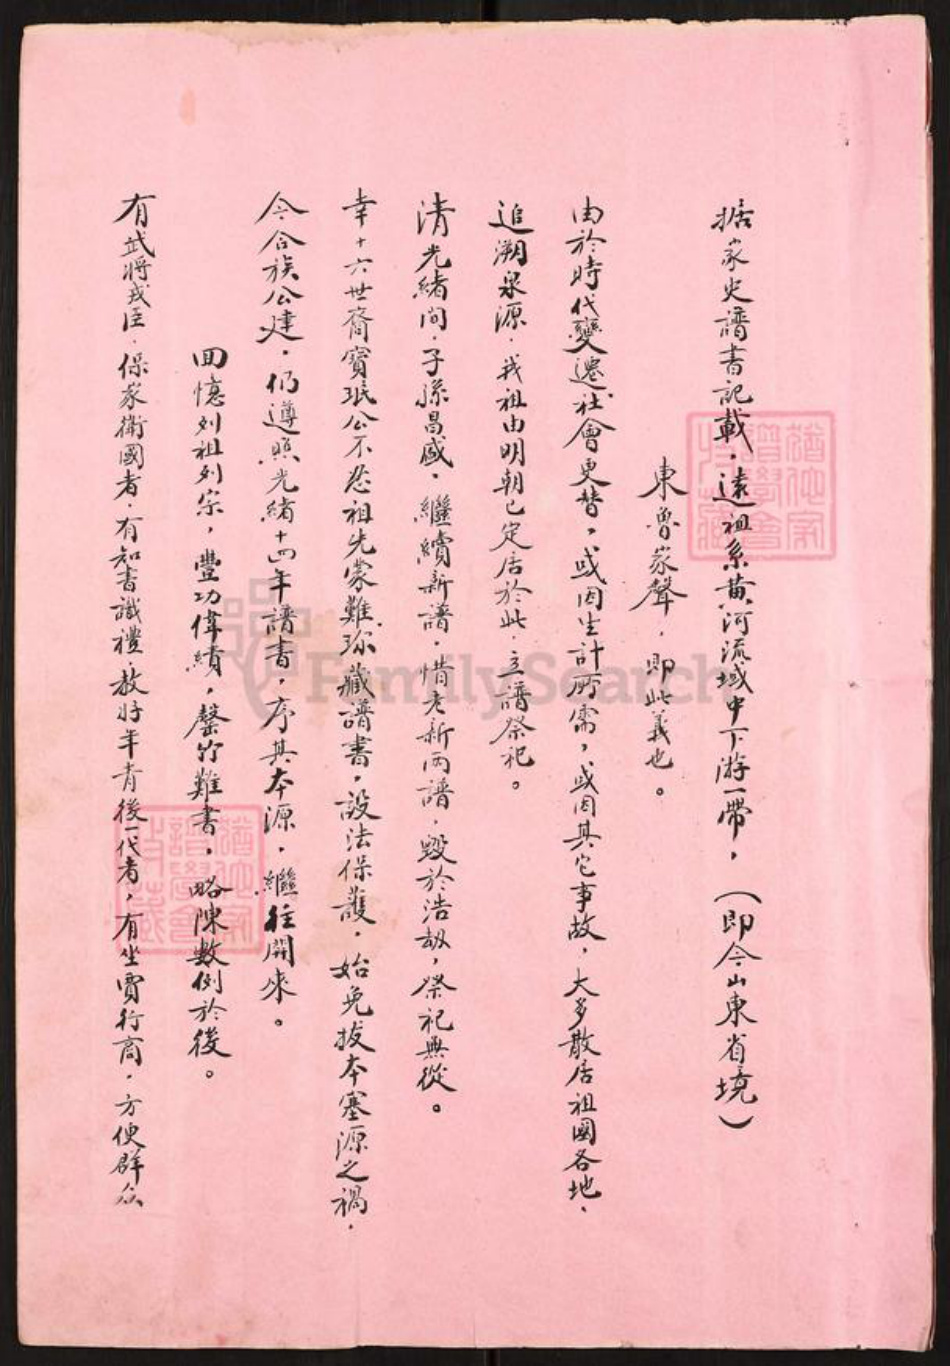 据家史譜書記載，遠祖系黄河流域中下游一帶，（即今山東省境）
東魯家聲，即此義也。
由於時代變遷社會更替，或因生計所需，或因其它事故，大多散居祖國各地、
追溯泉源，我祖由明朝已定居於此，立譜祭祀。
清光緒间，子孫昌盛，繼續新譜，惜老新两譜，毀於浩劫，祭祀無從。
幸十六世裔寳珉公不忍祖先蒙難，珎藏譜書，設法保護，始免拔本塞源之禍，
今合族公建，仍遵照光緒十四年譜書，序其本源，繼往開來。
回憶列祖列宗，豐功偉績，罄竹難書，略陳數例於後。
有武將戎臣，保家衛國者，有知書識禮，教好年青後一代者，有坐賈行商，方便群众
FamilySearch